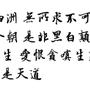 無所求不可
朝 是非黑白顛
生 愛恨貪嗔生
是天道